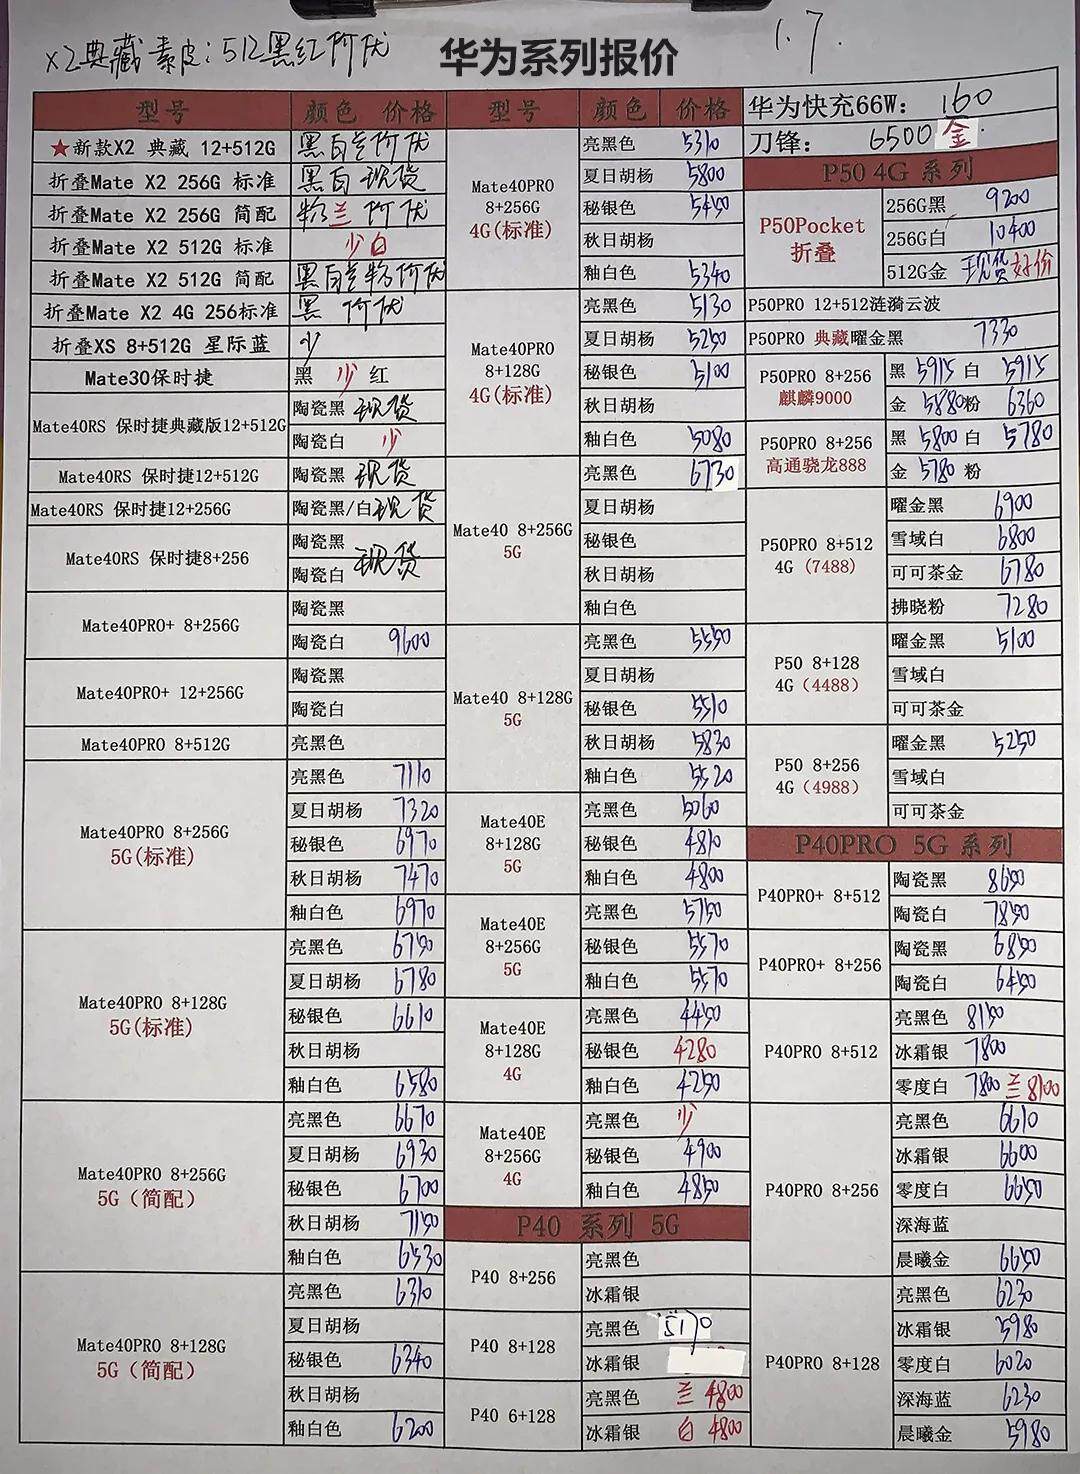 x2典藏素皮:512黑红价优
华为系列报价
1.7.
型号 颜色 价格
★新款X2 典藏 12+512G 黑白兰价优
折叠Mate X2 256G 标准 黑白现货
折叠Mate X2 256G 简配 粉兰价优
折叠Mate X2 512G 标准 少白
折叠Mate X2 512G 简配 黑白兰粉价优
折叠Mate X2 4G 256标准 黑 价优
折叠XS 8+512G 星际蓝 少
Mate30保时捷 黑 少 红
Mate40RS 保时捷典藏版12+512G
陶瓷黑 现货
陶瓷白 少
Mate40RS 保时捷12+512G 陶瓷黑 现货
Mate40RS 保时捷12+256G 陶瓷黑/白现货
Mate40RS 保时捷8+256
陶瓷黑
现货
陶瓷白
Mate40PRO+ 8+256G
陶瓷黑
陶瓷白 9600
Mate40PRO+ 12+256G
陶瓷黑
陶瓷白
Mate40PRO 8+512G 亮黑色
Mate40PRO 8+256G
5G(标准)
亮黑色 7110
夏日胡杨 7320
秘银色 6970
秋日胡杨 7470
釉白色 6970
Mate40PRO 8+128G
5G(标准)
亮黑色 6750
夏日胡杨 6780
秘银色 6610
秋日胡杨
釉白色 6580
Mate40PRO 8+256G
5G（简配）
亮黑色 6670
夏日胡杨 6930
秘银色 6700
秋日胡杨 7150
釉白色 6530
Mate40PRO 8+128G
5G（简配）
亮黑色 6310
夏日胡杨
秘银色 6340
秋日胡杨
釉白色 6200
型号 颜色 价格
Mate40PRO
8+256G
4G(标准)
亮黑色 5310
夏日胡杨 5800
秘银色 5450
秋日胡杨
釉白色 5340
Mate40PRO
8+128G
4G(标准)
亮黑色 5130
夏日胡杨 5250
秘银色 5100
秋日胡杨
釉白色 5080
Mate40 8+256G
5G
亮黑色 6730
夏日胡杨
秘银色
秋日胡杨
釉白色
Mate40 8+128G
5G
亮黑色 5550
夏日胡杨
秘银色 5510
秋日胡杨 5830
釉白色 5520
Mate40E
8+128G
5G
亮黑色 5060
秘银色 4810
釉白色 4800
Mate40E
8+256G
5G
亮黑色 5750
秘银色 5570
釉白色 5570
Mate40E
8+128G
4G
亮黑色 4450
秘银色 4280
釉白色 4250
Mate40E
8+256G
4G
亮黑色 少
秘银色 4900
釉白色 4850
P40 系列 5G
P40 8+256
亮黑色
冰霜银
P40 8+128
亮黑色 5170
冰霜银
P40 6+128
亮黑色 兰 4800
冰霜银 白 4800
华为快充66W: 160
刀锋: 6500 金.
P50 4G 系列
P50Pocket
折叠
256G黑 9200
256G白 10400
512G金 现货好价
P50PRO 12+512涟漪云波
P50PRO 典藏曜金黑 7330
P50PRO 8+256
麒麟9000
黑 5915 白 5915
金 5880粉 6360
P50PRO 8+256
高通骁龙888
黑 5800 白 5780
金 5780 粉
P50PRO 8+512
4G（7488）
曜金黑 6900
雪域白 6800
可可茶金 6780
拂晓粉 7280
P50 8+128
4G（4488）
曜金黑 5100
雪域白
可可茶金
P50 8+256
4G（4988）
曜金黑 5250
雪域白
可可茶金
P40PRO 5G 系列
P40PRO+ 8+512
陶瓷黑 8650
陶瓷白 7850
P40PRO+ 8+256
陶瓷黑 6850
陶瓷白 6450
P40PRO 8+512
亮黑色 8150
冰霜银 7800
零度白 7800 兰 8100
P40PRO 8+256
亮黑色 6610
冰霜银 6600
零度白 6650
深海蓝
晨曦金 6650
P40PRO 8+128
亮黑色 6230
冰霜银 5980
零度白 6020
深海蓝 6230
晨曦金 5980